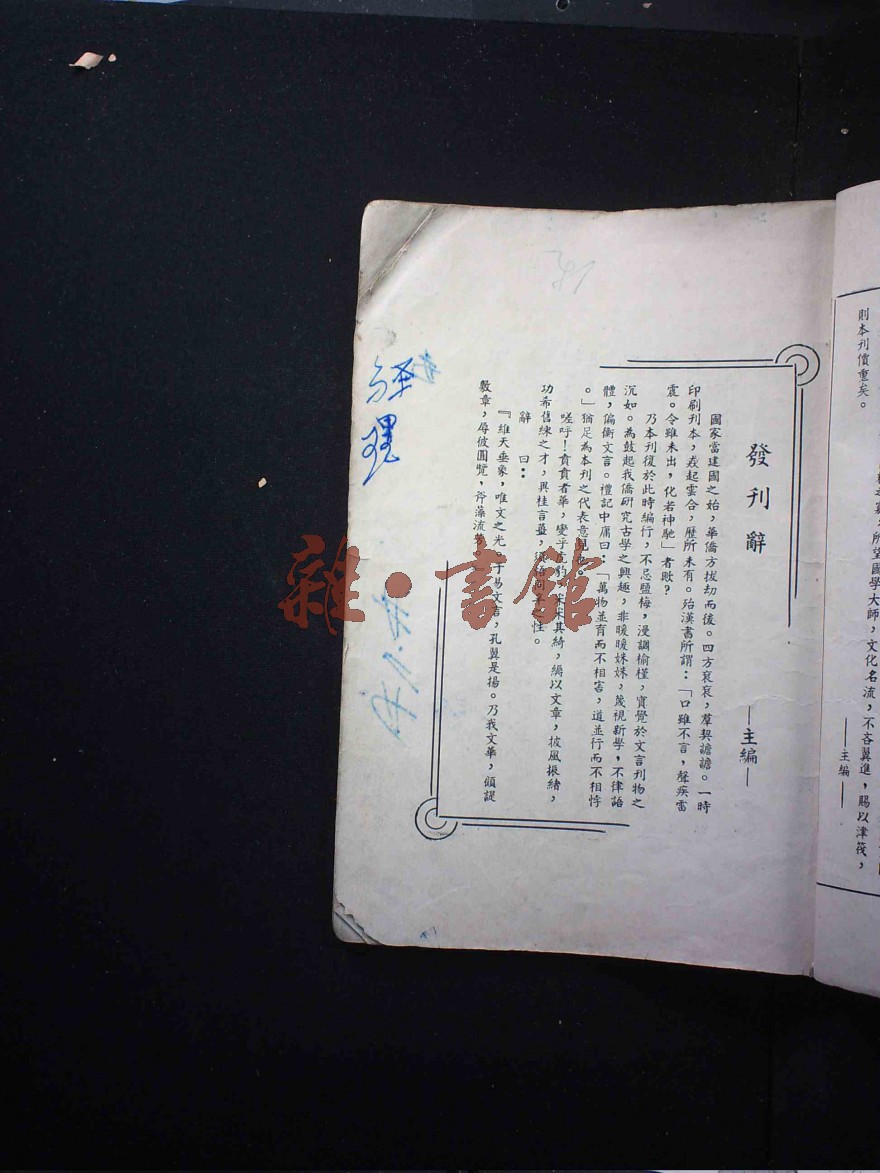 則本刊價重矣。
所望國學大師，文化名流，不吝翼進，賜以津筏，
——主編——
發刊辭
——主編——
國家當建國之始，華僑方拔劫而後。四方裒裒，羣契譫譫。一時
印刷刊本，焱起雲合，歷所未有。殆漢書所謂：「口雖不言，聲疾雷
震。令雖未出，化若神馳」者歟？
乃本刊復於此時編行，不忌鹽梅，漫調榆槿，實覺於文言刊物之
沉如。為鼓起我僑研究古學之興趣，非暖暖姝姝，蔑視新學，不律語
體，偏衡文言。禮記中庸曰：「萬物並育而不相害，道並行而不相悖
。」猶足為本刊之代表意見也。
嗟呼！賁賁者華，變乎 其綺，編以文章，披風振緒，
功希舊練之才，異桂言薑， 性。
辭曰：
『維天垂象，唯文之光。于易文言，孔翼是揚。乃我文華，傾諟
數章，辱彼圓覽，斧藻流
雜·書館